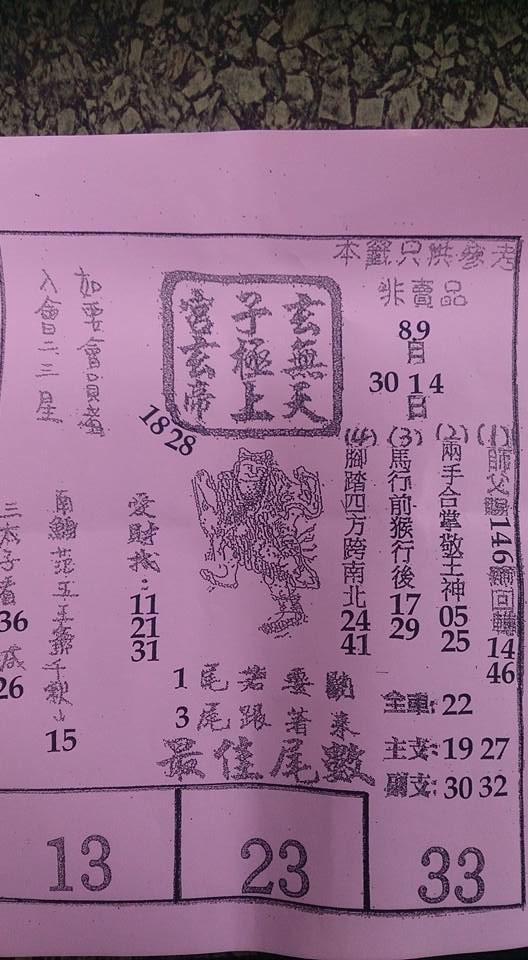 本籤只供參考
非賣品
89
月
30 1 4
日
(1)師父賜146輪回轉
14
46
(2)兩手合掌敬土神
05
25
(3)馬行前猴行後
17
29
(4)腳踏四方跨南北
24
41
玄無天
子極上
宮玄帝
18 28
如要會員盤
入會二三星
愛財找:
11
21
31
南鯤范五王爺千秋
15
三太子看
36
26
1 尾若要
3 尾跟著來
最佳尾數
全車: 22
主支: 19 27
副支: 30 32
13
23
33